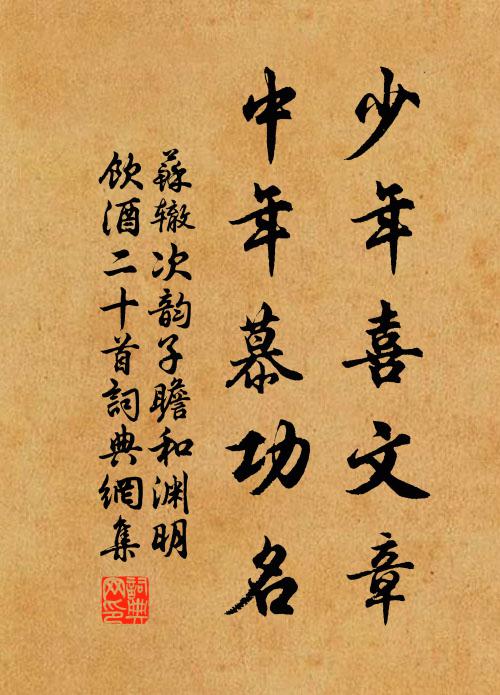 少年喜文章
中年慕功名
蘇辙次韵子瞻和渊明
飲酒二十首詞典網集
詞典
网印